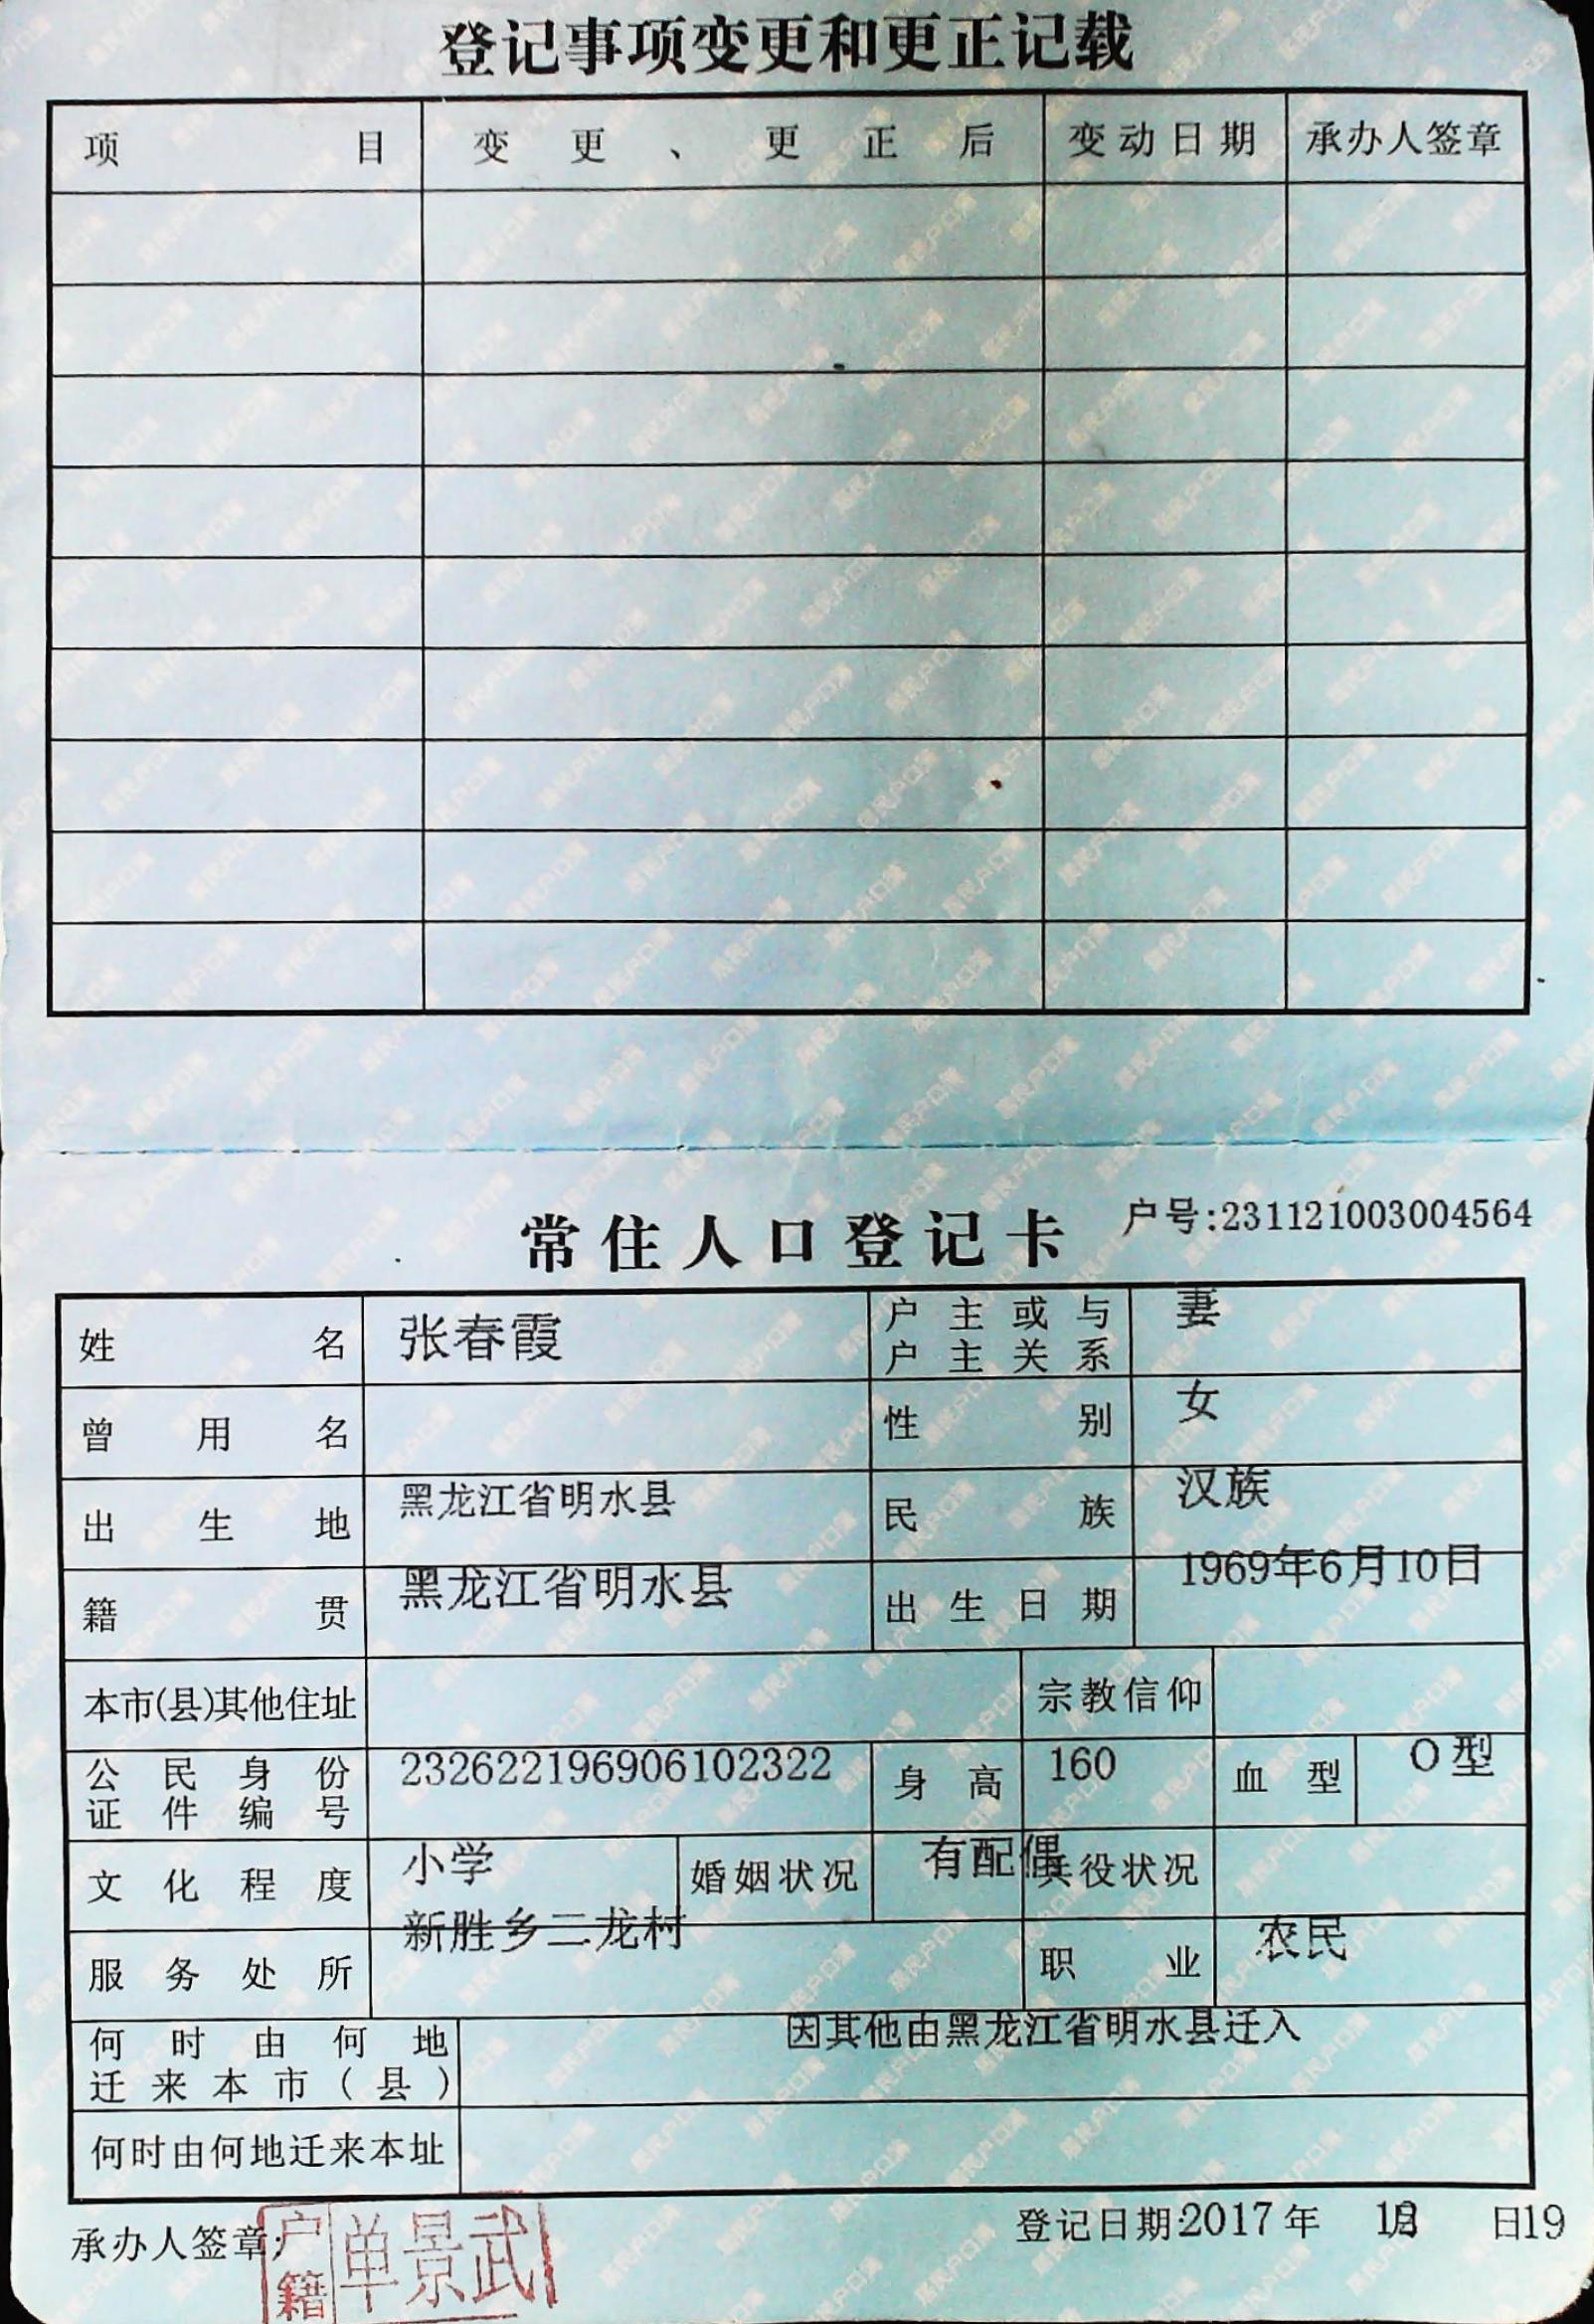 登记事项变更和更正记载
项目 变更、更正后 变动日期 承办人签章
常住人口登记卡 户号:231121003004564
姓名 张春霞 户主或与户主关系 妻
曾用名 性别 女
出生地 黑龙江省明水县 民族 汉族
籍贯 黑龙江省明水县 出生日期 1969年6月10日
本市(县)其他住址 宗教信仰
公民身份证件编号 232622196906102322 身高 160 血型 O型
文化程度 小学 婚姻状况 有配偶 兵役状况
服务处所 新胜乡二龙村 职业 农民
何时由何地迁来本市(县) 因其他由黑龙江省明水县迁入
何时由何地迁来本址
承办人签章: 户籍 单景武 登记日期:2017年 月 日19